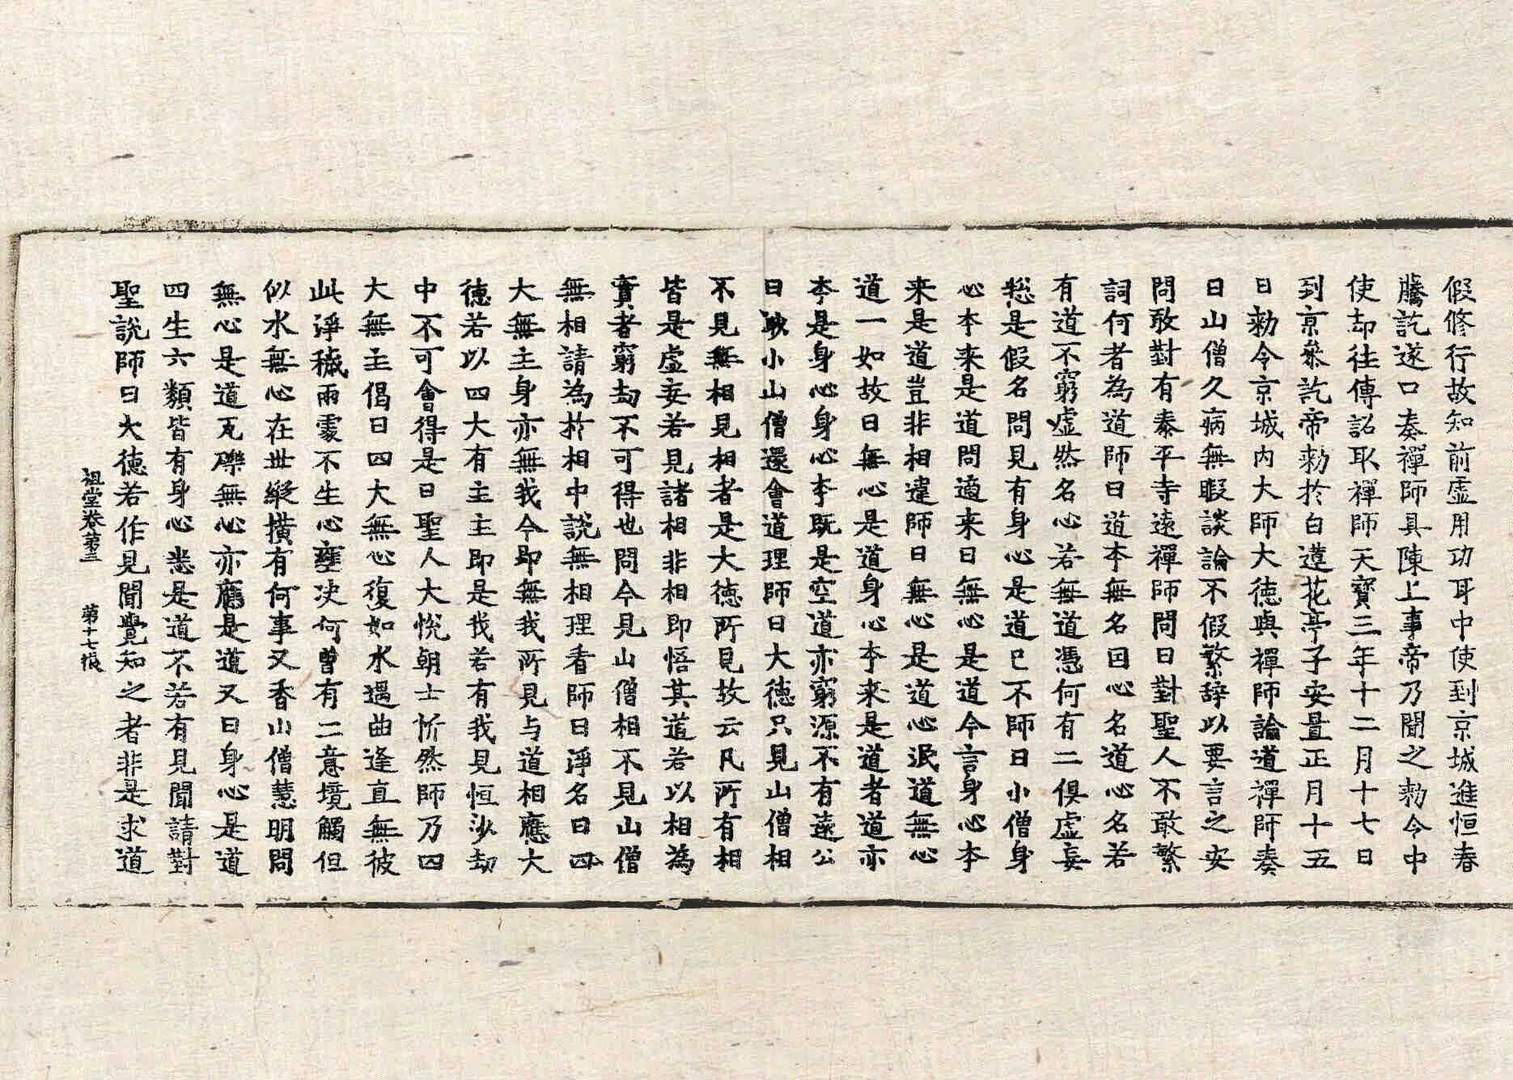 假修行故知前虛用功耳中使到京城進恒春
騰訖遂口奏禪師具陳上事帝乃聞之勑令中
使却往傳詔取禪師天寶三年十二月十七日
到京叅訖帝勑於白蓮花亭子安置正月十五
日勑令京城內大師大德與禪師論道禪師奏
曰山僧久病無暇談論不假繁辞以要言之安
問敢對有泰平寺遠禪師問曰對聖人不敢繁
詞何者為道師曰道本無名因心名道心名若
有道不窮虛然名心若無道憑何有二俱虛妄
揔是假名問見有身心是道已不師曰小僧身
心本来是道問適来曰無心是道今言身心本
来是道豈非相違師曰無心是道心泯道無心
道一如故曰無心是道身心本来是道者道亦
本是身心身心本既是空道亦窮源不有遠公
曰眇小山僧還會道理師曰大德只見山僧相
不見無相見相者是大德所見故云凡所有相
皆是虛妄若見諸相非相即悟其道若以相為
實者窮劫不可得也問今見山僧相不見山僧
無相請為於相中說無相理看師曰淨名曰四
大無主身亦無我今即無我所見与道相應大
德若以四大有主主即是我若有我見恒沙劫
中不可會得是曰聖人大悅朝士忻然師乃四
大無主偈曰四大無心復如水遇曲逢直無彼
此淨穢兩䖏不生心壅决何曾有二意境觸但
似水無心在世縱橫有何事又香山僧慧明問
無心是道瓦礫無心亦應是道又曰身心是道
四生六類皆有身心悉是道不若有見聞請對
聖說師曰大德若作見聞覺知之者非是求道
祖堂卷第三 第十七張